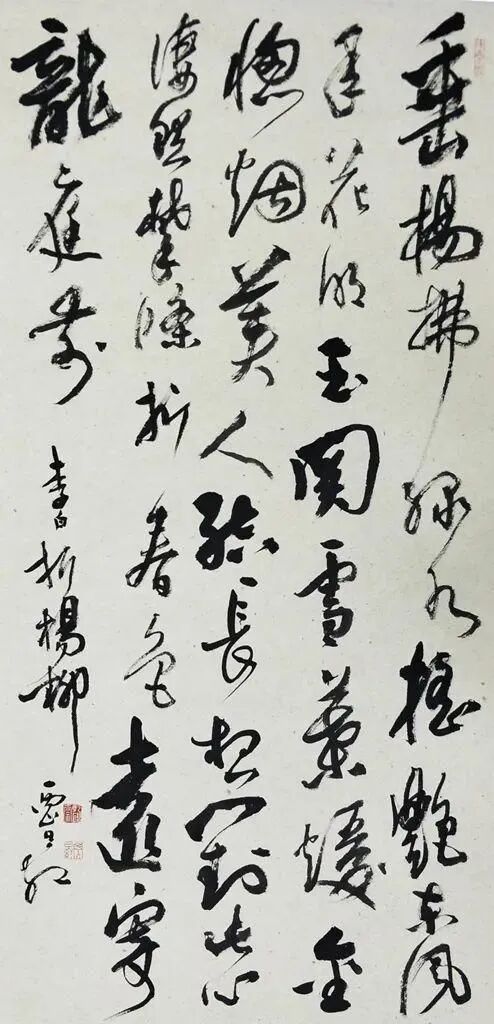 垂楊拂緑水搖艷东風
年花明玉関雪葉煖金
牕烟美人結長想對此心
凄然攀條折春色遠寄
龍庭前
李白折楊柳